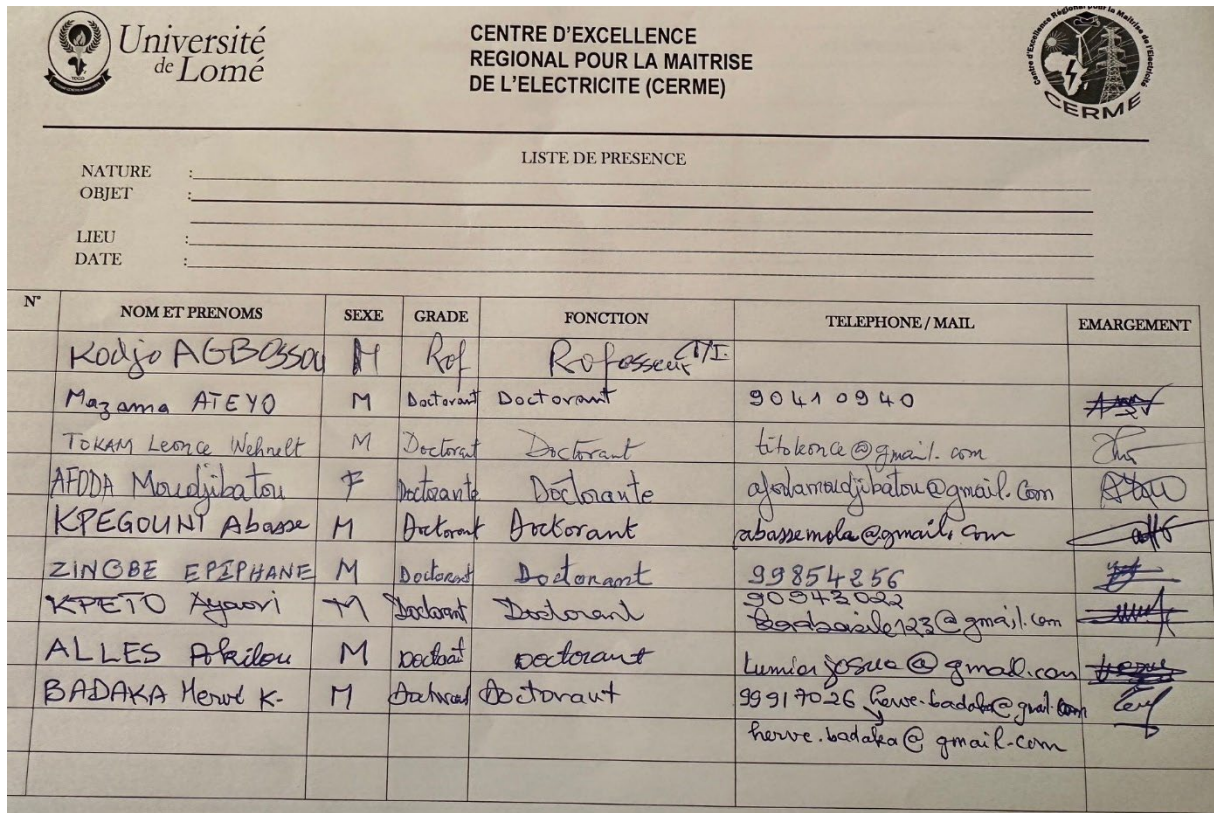 Université
de Lomé
CENTRE D'EXCELLENCE
REGIONAL POUR LA MAITRISE
DE L'ELECTRICITE (CERME)
Centre d'Excellence Régional pour la Maitrise de l'Electricité
CERME
LISTE DE PRESENCE
NATURE :
OBJET :
LIEU :
DATE :
N° NOM ET PRENOMS SEXE GRADE FONCTION TELEPHONE / MAIL EMARGEMENT
Kodjo AGBOSSOU M Prof Professeur
Mazama ATEYO M Doctorant Doctorant 90410940
TOKAM Leonce Wehnelt M Doctorant Doctorant titoleonce@gmail.com
AFODA Moudjibatou F Doctorante Doctorante afodamoudjibatou@gmail.com
KPEGOUNI Abasse M Doctorant Doctorant abassemola@gmail.com
ZINGBE EPIPHANE M Doctorant Doctorant 99854256
KPETO Ayaovi M Doctorant Doctorant 90943022
@gmail.com
ALLES M Doctorant Doctorant @gmail.com
BADAKA Hervé K. M Doctorant Doctorant 99917026 herve.badaka@gmail.com
herve.badaka@gmail.com